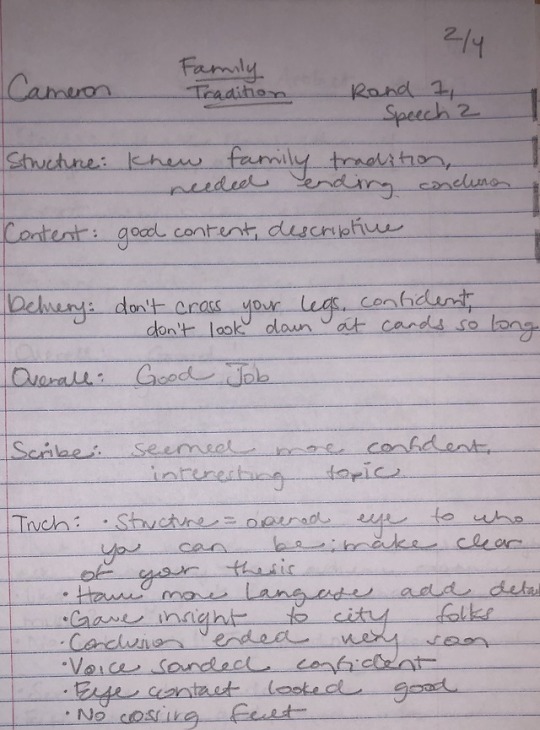 2/4
Family
Cameron Tradition Rand 1,
Speech 2
Structure: Knew family tradition,
needed ending conclusion
Content: good content, descriptive
Delivery: don't cross your legs, confident,
don't look down at cards so long
Overall: Good Job
Scribe: seemed more confident,
interesting topic
Truch: • Structure = opened eye to who
you can be; make clear
of your thesis
• Have more langage add detail
• Gave insight to city folks
• Conclusion ended very soon
• Voice sanded confident
• Eye contact looked good
• No cossing feet